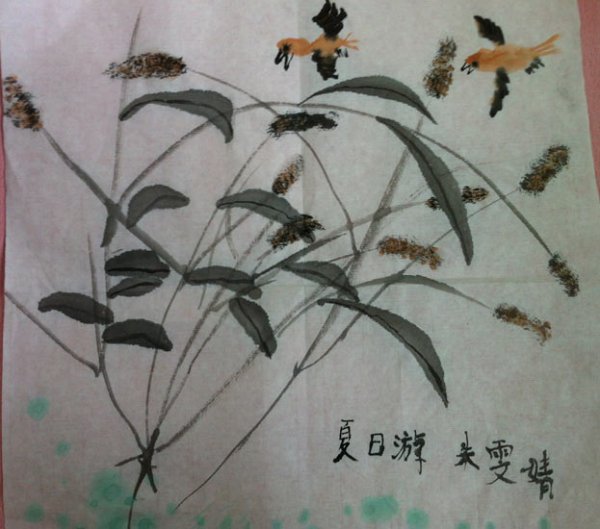 夏日游 朱雯婧